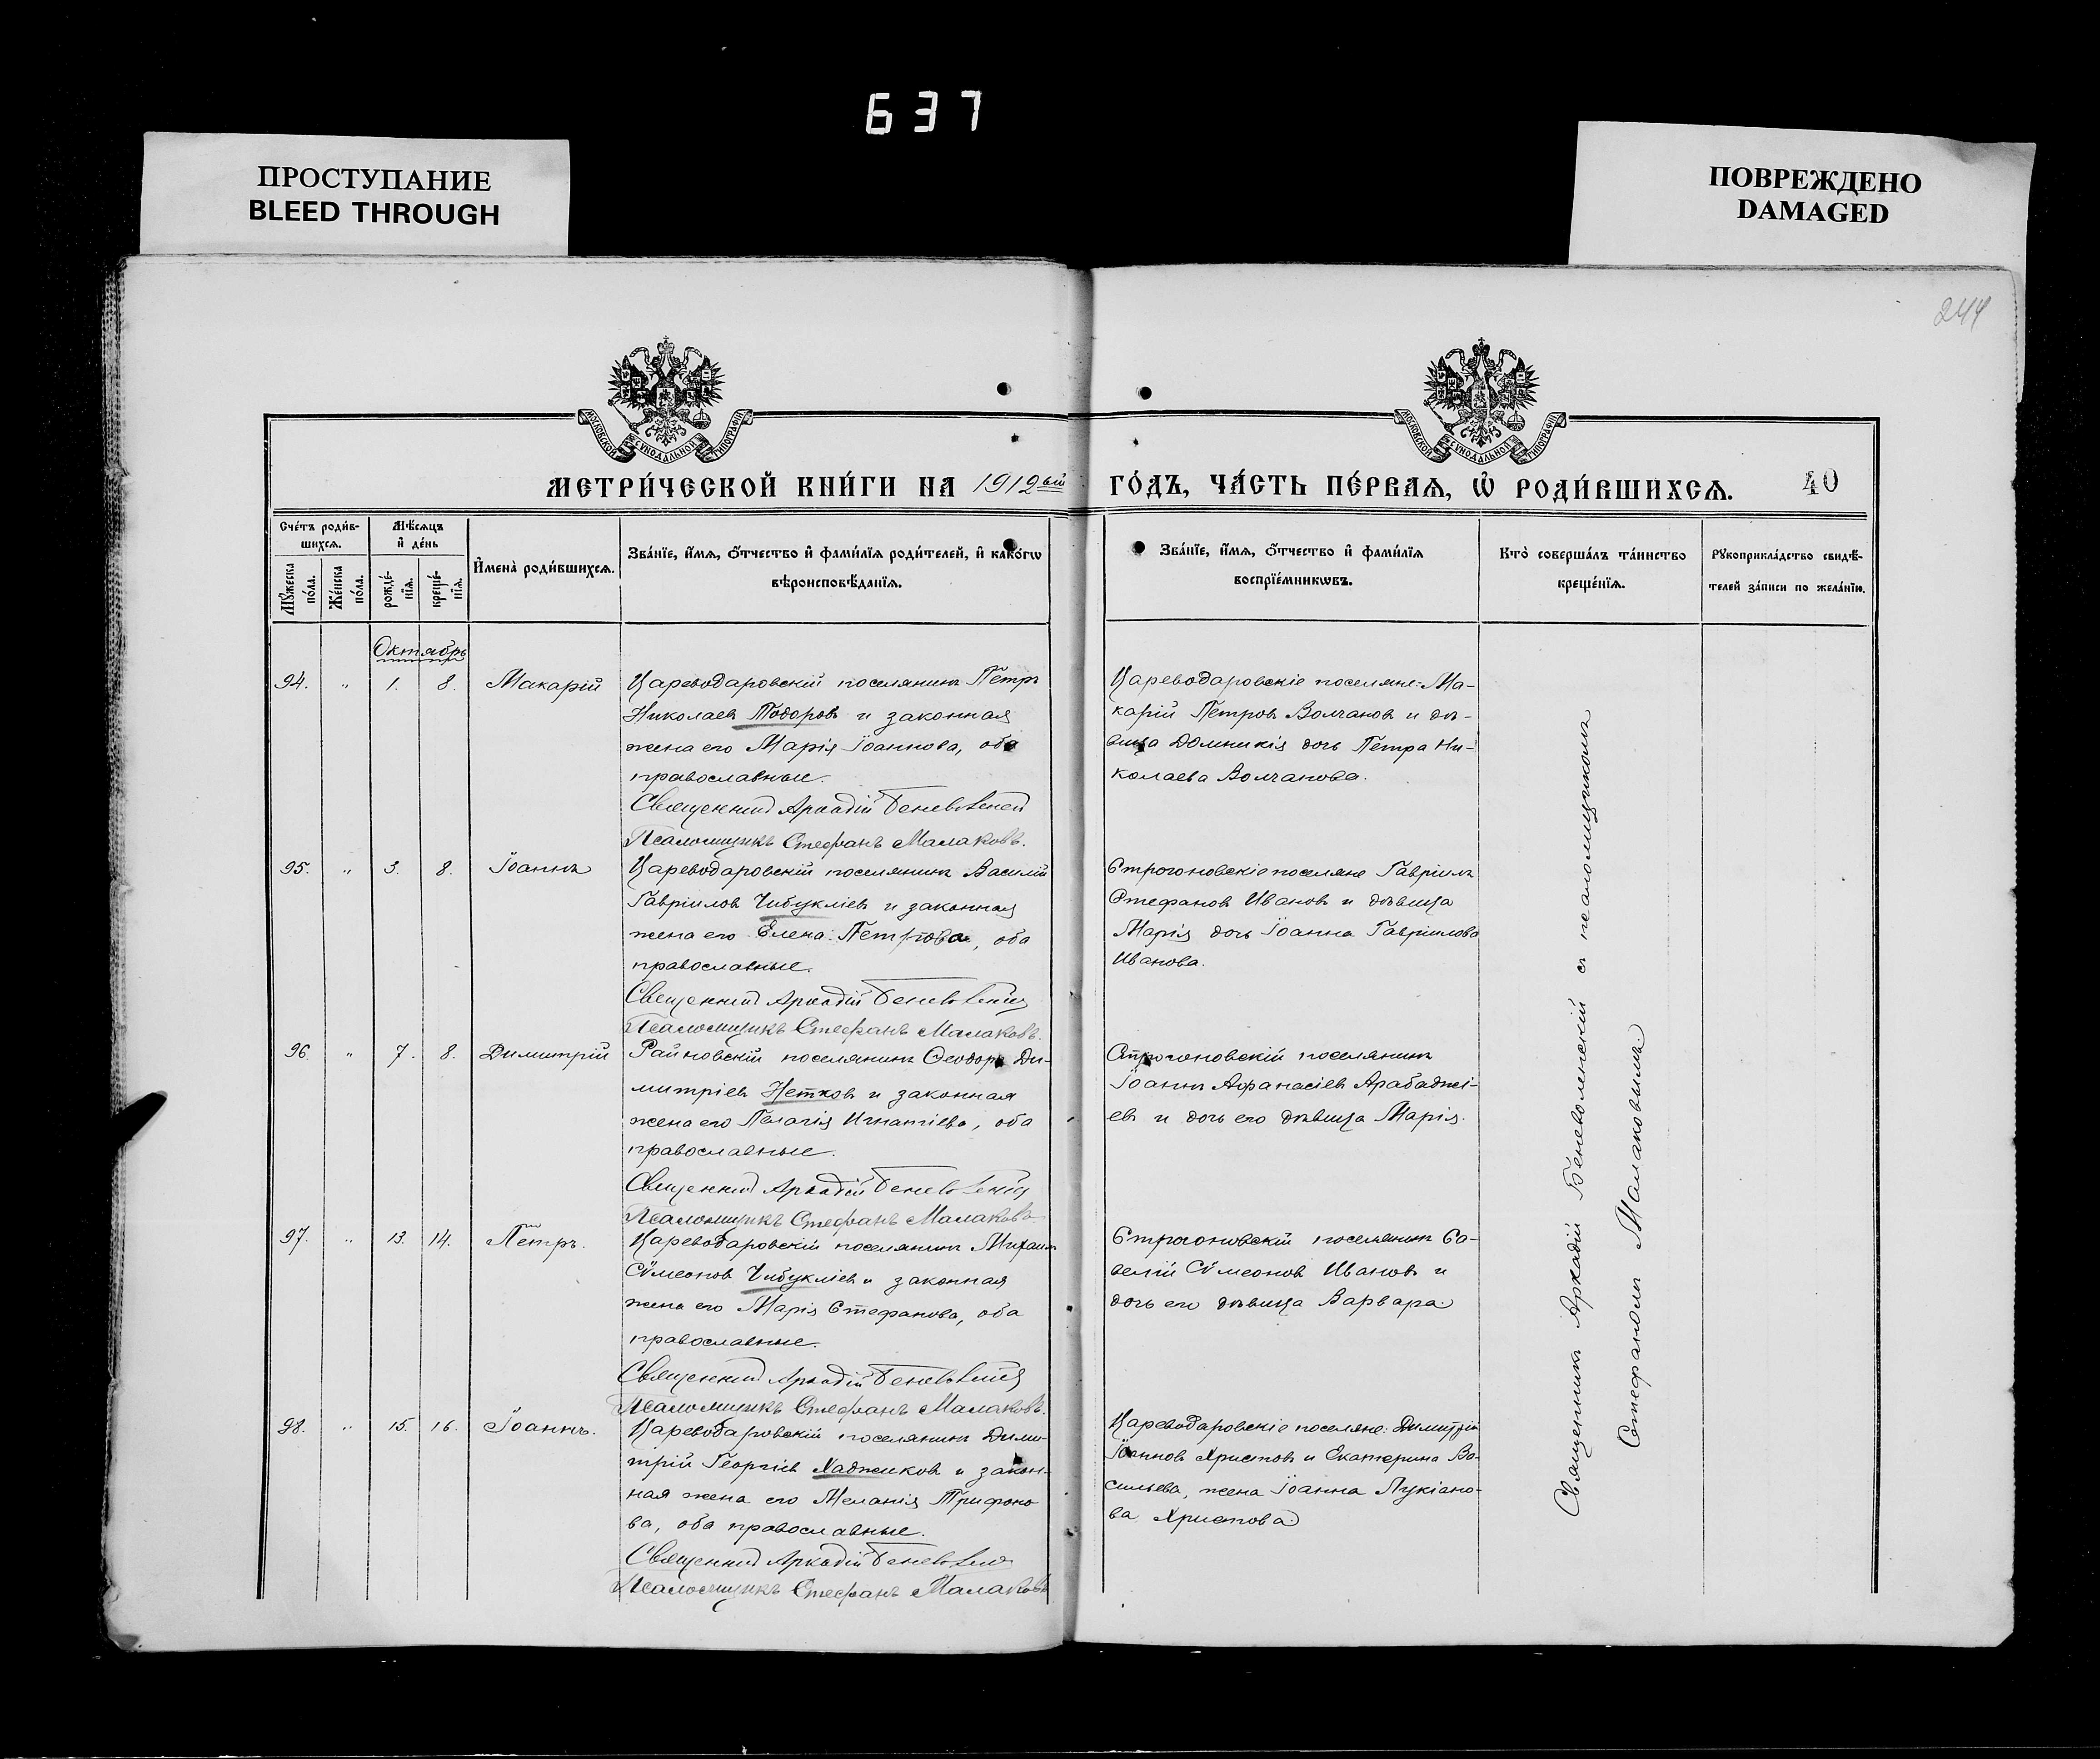 637
ПРОСТУПАНИЕ
BLEED THROUGH
ПОВРЕЖДЕНО
DAMAGED
244
МОСКОВСКОЙ СѴНОДАЛЬНОЙ ТИПОГРАФІИ
МОСКОВСКОЙ СѴНОДАЛЬНОЙ ТИПОГРАФІИ
МЕТРИ́ЧЕСКОЙ КНИ́ГИ НА 1912ый ГО́ДЪ, ЧА́СТЬ ПЕ́РВАЯ, Ѽ РОДИ́ВШИХСЯ. 40
Сче́тъ роди́вшихся.
Мꙋ́жеска по́ла.
Же́нска по́ла.
Мѣ́сяцъ и҆ де́нь
рожде́нїя.
креще́нїя.
И҆мена̀ роди́вшихся.
Зва́нїе, и҆́мя, ѻ҆́тчество и҆ фами́лїя роди́телей, и҆ како́гѡ
вѣроисповѣ́данїя.
Зва́нїе, и҆́мя, ѻ҆́тчество и҆ фами́лїя
воспрїе́мникѡвъ.
Кто̀ соверша́лъ та́инство
креще́нїя.
Рꙋкоприкла́дство свидѣ́-
телей за́писи по жела́нїю.
Октябрь
94. " 1. 8. Макарій
Цареводаровскій поселянинъ Петръ
Николаевъ Тодоровъ и законная
жена его Марія Іоаннова, оба
православные.
Священникъ Аркадій Беневоленскій
Псаломщикъ Стефанъ Малаковъ.
Цареводаровскіе поселяне: Ма-
карій Петровъ Волчановъ и дѣ-
вица Домникія дочь Петра Ни-
колаева Волчанова.
95. " 3. 8. Іоаннъ
Цареводаровскій поселянинъ Василій
Гавріиловъ Чибукліевъ и законная
жена его Елена Петрова, оба
православные.
Священникъ Аркадій Беневоленскій
Псаломщикъ Стефанъ Малаковъ.
Строгоновскіе поселяне Гавріилъ
Стефановъ Ивановъ и дѣвица
Марія дочь Іоанна Гавріилова
Иванова.
96. " 7. 8. Димитрій
Райновскій поселянинъ Ѳеодоръ Ди-
митріевъ Нетковъ и законная
жена его Пелагія Игнатіева, оба
православные.
Священникъ Аркадій Беневоленскій
Псаломщикъ Стефанъ Малаковъ
Строгоновскій поселянинъ
Іоаннъ Аѳанасіевъ Арабаджі-
евъ и дочь его дѣвица Марія.
97. " 13. 14. Петръ.
Цареводаровскій поселянинъ Михаилъ
Сѵмеоновъ Чибукліевъ и законная
жена его Марія Стефанова, оба
православные.
Священникъ Аркадій Беневоленскій
Псаломщикъ Стефанъ Малаковъ.
Строгоновскій поселянинъ Са-
велій Сѵмеоновъ Ивановъ и
дочь его дѣвица Варвара
98. " 15. 16. Іоаннъ.
Цареводаровскій поселянинъ Дими-
трій Георгіевъ Хаджиковъ и закон-
ная жена его Меланія Трифоно
ва, оба православные.
Священникъ Аркадій Беневоленскій
Псаломщикъ Стефанъ Малаковъ
Цареводаровскіе поселяне: Димитрій
Іоанновъ Христовъ и Екатерина Ва-
сильева, жена Іоанна Лукіано-
ва Христова
Священникъ Аркадій Беневоленскій съ псаломщикомъ
Стефаномъ Малаковымъ.